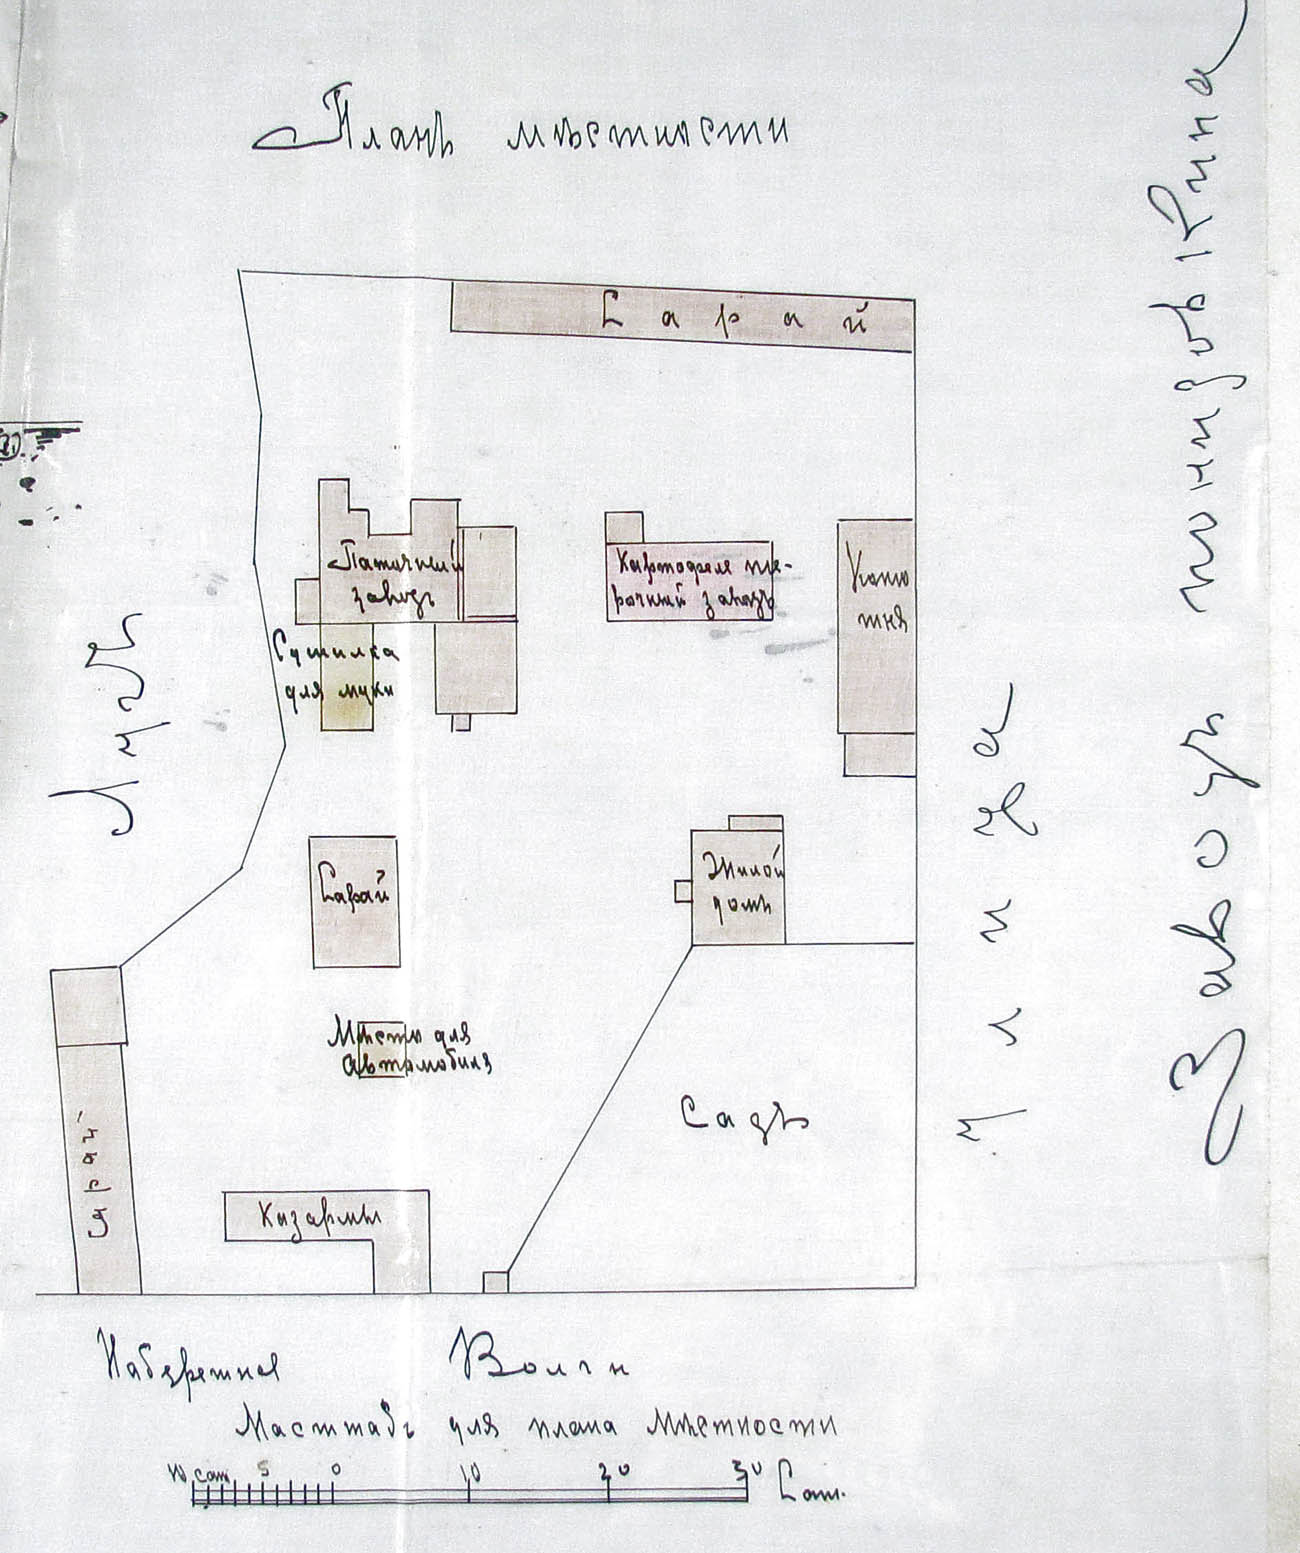 Планъ мѣстности
Сарай
Паточный
заводъ
Картофеле те-
рочный заводъ
Конюш
Сушилка
для муки
Лугъ
Сарай
Жилой
домъ
Улица
Заводъ
Мѣсто для
автомобиля
Садъ
Сарай
Казармы
Набережная Волги
Масштабъ для плана мѣстности
10 саж 5 0 10 20 30 Саж.